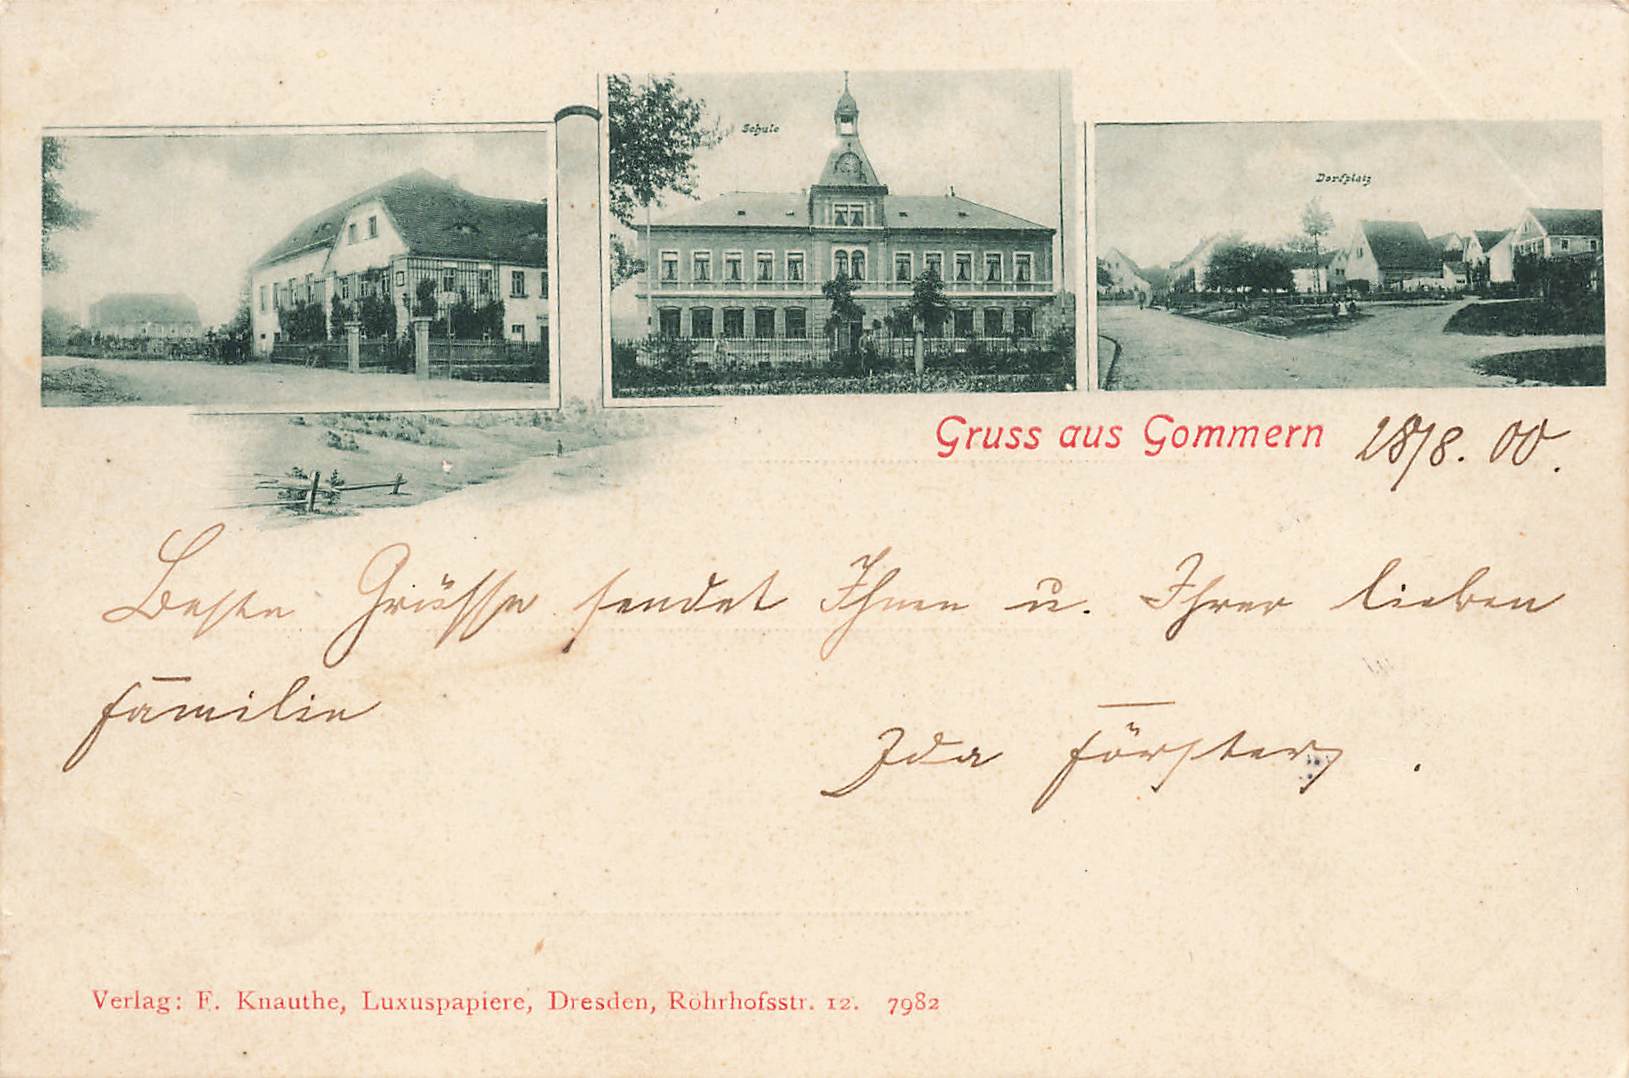 Schule
Dorfplatz
Gruss aus Gommern 28/8. 00.
Beste Grüsse sendet Ihnen u. Ihrer lieben
Familie
Ida Förster.
Verlag: F. Knauthe, Luxuspapiere, Dresden, Röhrhofsstr. 12. 7982